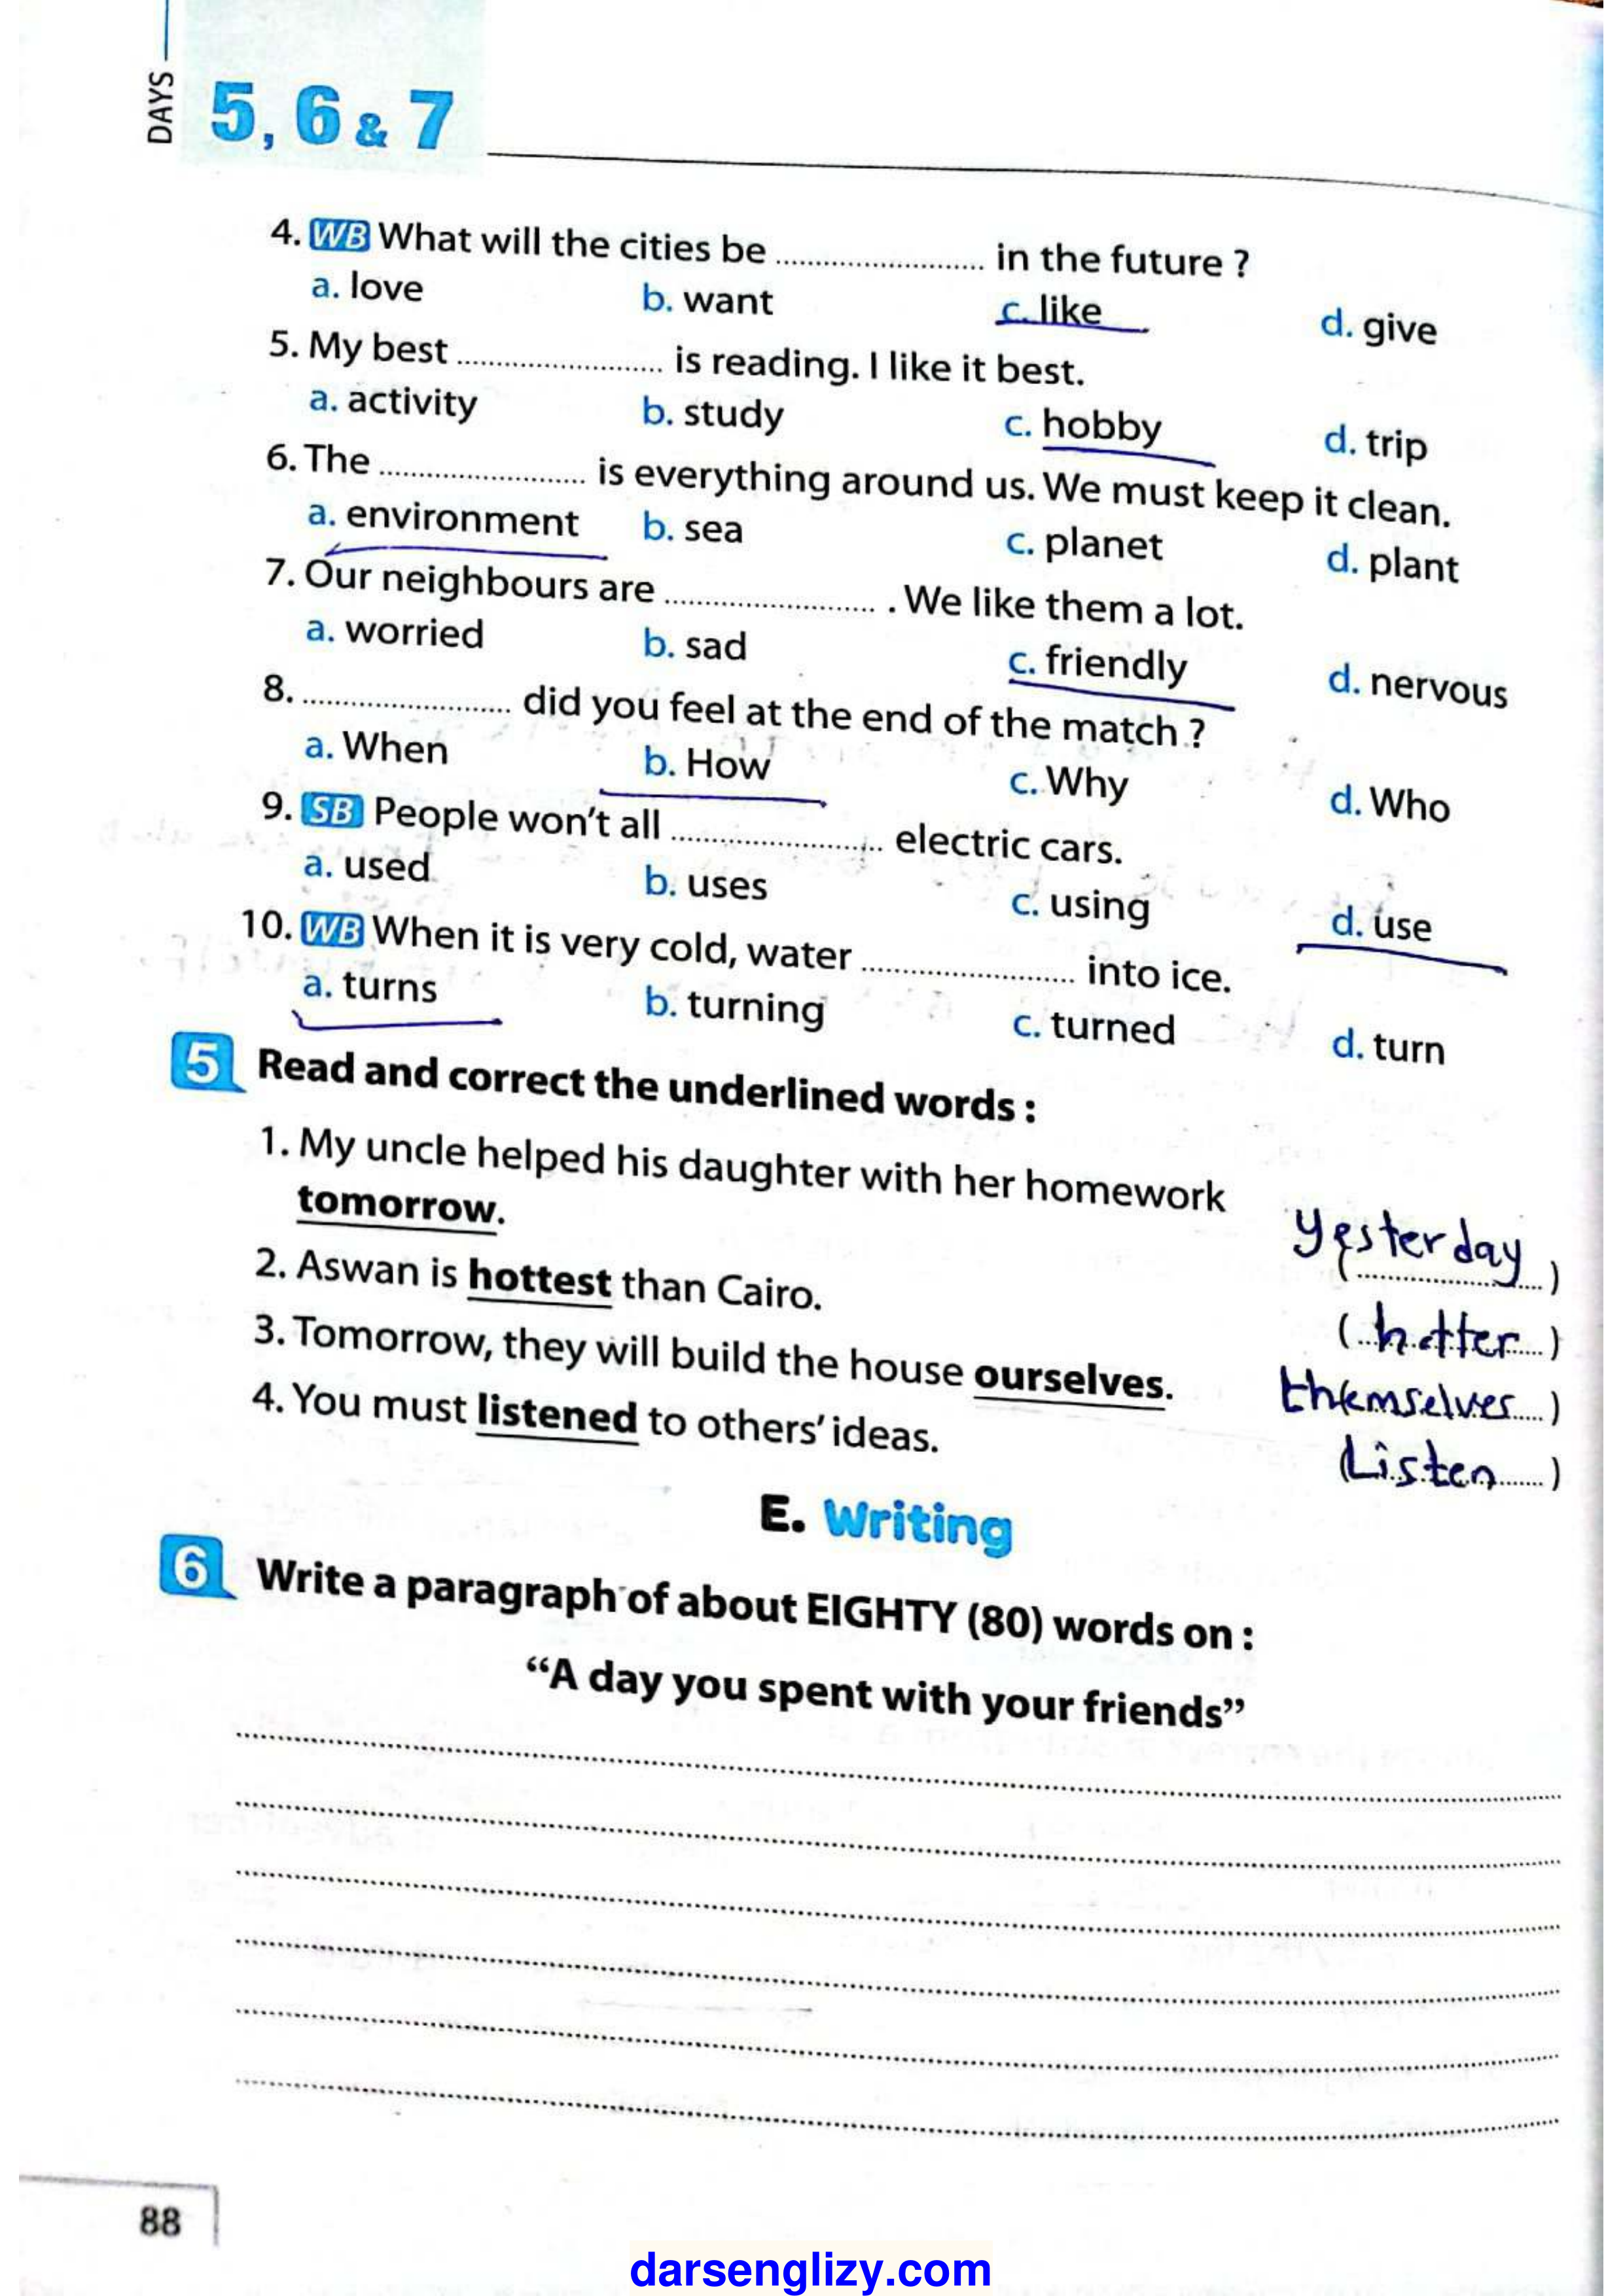 DAYS
5, 6 & 7
4. WB What will the cities be ........................ in the future ?
a. love b. want c. like d. give
5. My best ........................ is reading. I like it best.
a. activity b. study c. hobby d. trip
6. The ........................ is everything around us. We must keep it clean.
a. environment b. sea c. planet d. plant
7. Our neighbours are ........................ . We like them a lot.
a. worried b. sad c. friendly d. nervous
8. ........................ did you feel at the end of the match ?
a. When b. How c. Why d. Who
9. SB People won't all ........................ electric cars.
a. used b. uses c. using d. use
10. WB When it is very cold, water ........................ into ice.
a. turns b. turning c. turned d. turn
5 Read and correct the underlined words :
1. My uncle helped his daughter with her homework
tomorrow. (yesterday)
2. Aswan is hottest than Cairo. (hotter)
3. Tomorrow, they will build the house ourselves. (themselves)
4. You must listened to others' ideas. (Listen)
E. Writing
6 Write a paragraph of about EIGHTY (80) words on :
“A day you spent with your friends”
88
darsenglizy.com